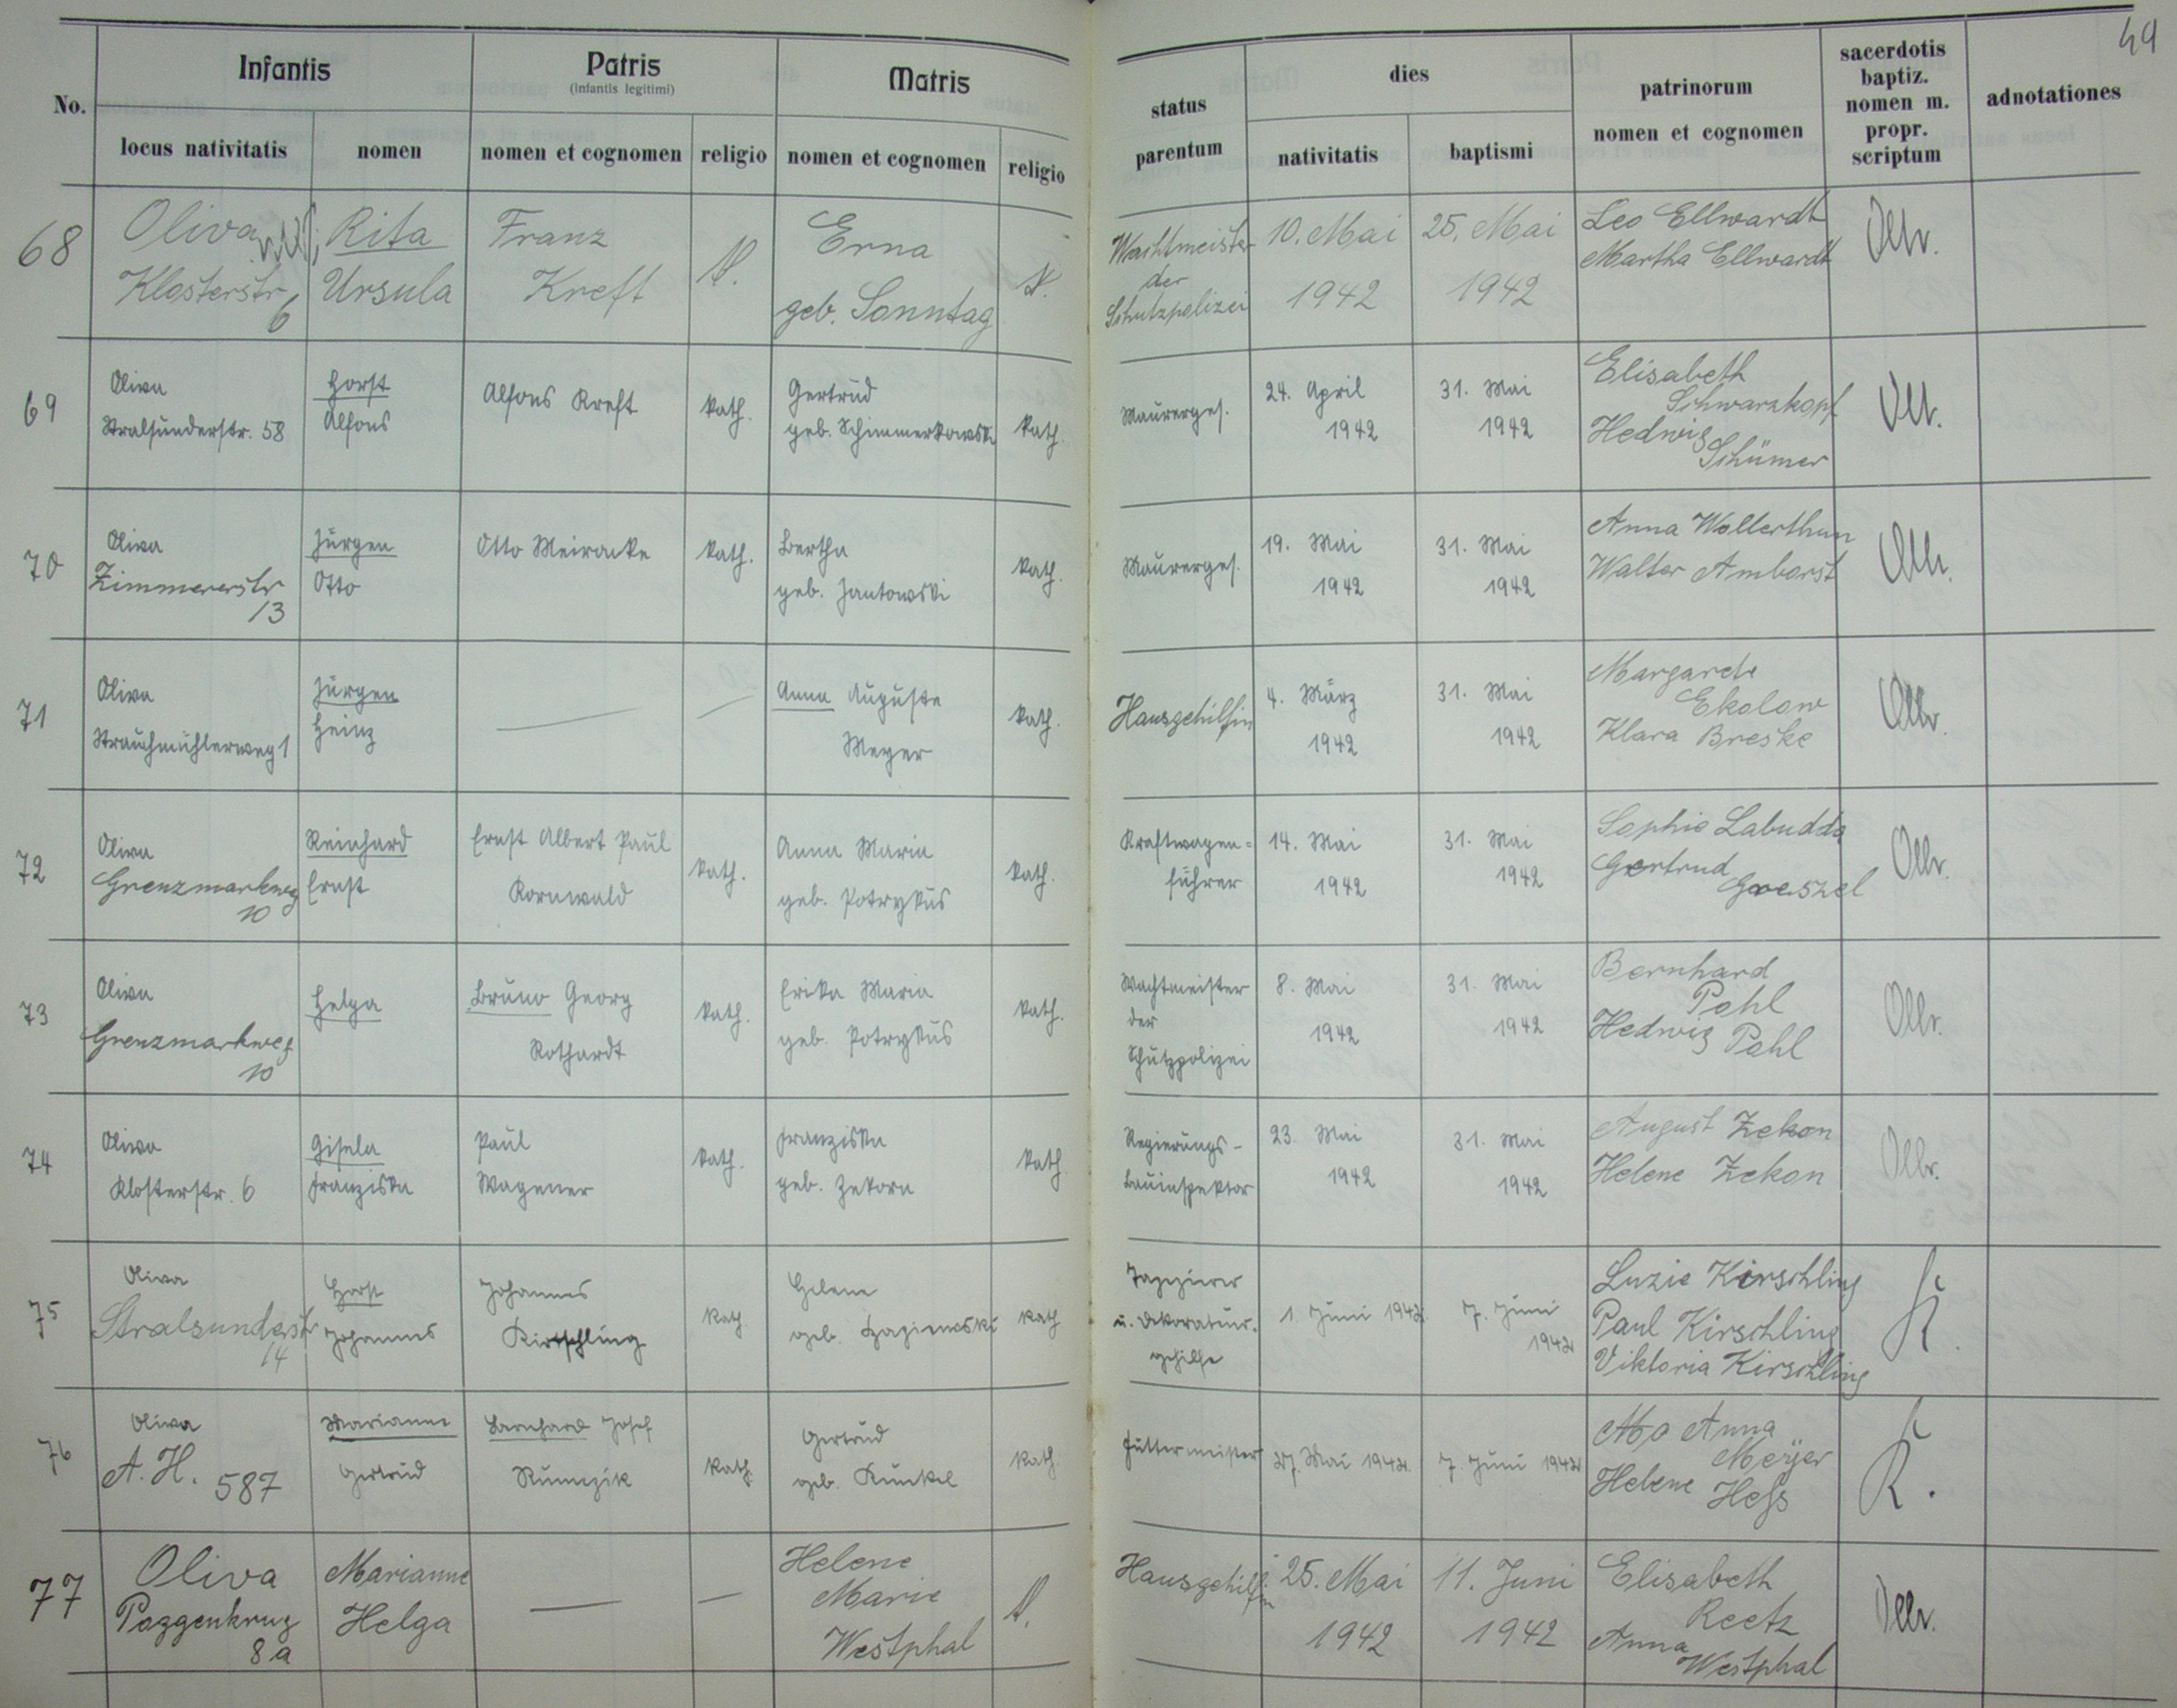 49
No.
Infantis
Patris
(infantis legitimi)
Matris
status
parentum
dies
patrinorum
nomen et cognomen
sacerdotis
baptiz.
nomen m.
propr.
scriptum
adnotationes
locus nativitatis
nomen
nomen et cognomen
religio
nomen et cognomen
religio
nativitatis
baptismi
68
Oliva
Klosterstr
6
Rita
Ursula
Franz
Kreft
Erna
geb. Sonntag
Wachtmeister
der
Schutzpolizei
10. Mai
1942
25. Mai
1942
Leo Ellwardt
Martha Ellwardt
69
Oliva
Stralsunderstr. 58
Horst
Alfons
Alfons Kreft
kath.
Gertrud
geb. Schimmerkowski
kath.
Maurerges.
24. April
1942
31. Mai
1942
Elisabeth
Schwarzkopf
Hedwig
Schümer
70
Oliva
Zimmererstr
13
Jürgen
Otto
Otto Meiranke
kath.
Bertha
geb. Jantowski
kath.
Maurerges.
19. Mai
1942
31. Mai
1942
Anna Wollerthun
Walter Amborst
71
Oliva
Strauchmühlerweg 1
Jürgen
Heinz
—
—
Anna Auguste
Meyer
kath.
Hausgehilfin
4. März
1942
31. Mai
1942
Margarete
Ekolow
Klara Breske
72
Oliva
Grenzmarkweg
10
Reinhard
Ernst
Ernst Albert Paul
Kornwald
kath.
Anna Maria
geb. Potrykus
kath.
Kraftwagen=
führer
14. Mai
1942
31. Mai
1942
Sophie Labudda
Gertrud
Groeszel
73
Oliva
Grenzmarkweg
10
Helga
Bruno Georg
Rothardt
kath.
Erika Maria
geb. Potrykus
kath.
Wachtmeister
der
Schutzpolizei
8. Mai
1942
31. Mai
1942
Bernhard
Pahl
Hedwig Pahl
74
Oliva
Klosterstr. 6
Gisela
Franziska
Paul
Wagener
kath.
Franziska
geb. Zekorn
kath.
Regierungs-
bauinspektor
23. Mai
1942
31. Mai
1942
August Zekon
Helene Zekon
75
Oliva
Stralsunderstr
14
Horst
Johannes
Johannes
Kirschling
kath
Helene
geb.
kath
Tapezierer
u. Dekorateur.
gehilfe
1. Juni 1942
7. Juni
1942
Luzie Kirschling
Paul Kirschling
Viktoria Kirschling
K.
76
Oliva
A. H. 587
Marianne
Gertrud
Bernhard Josef
Rumczik
kath.
Gertrud
geb. Kunkel
kath.
Futtermeister
27. Mai 1942
7. Juni 1942
Anna
Meyer
Helene Heß
K.
77
Oliva
Poggenkrug
8a
Marianne
Helga
—
—
Helene
Marie
Westphal
Hausgehilfin
25. Mai
1942
11. Juni
1942
Elisabeth
Reetz
Anna
Westphal